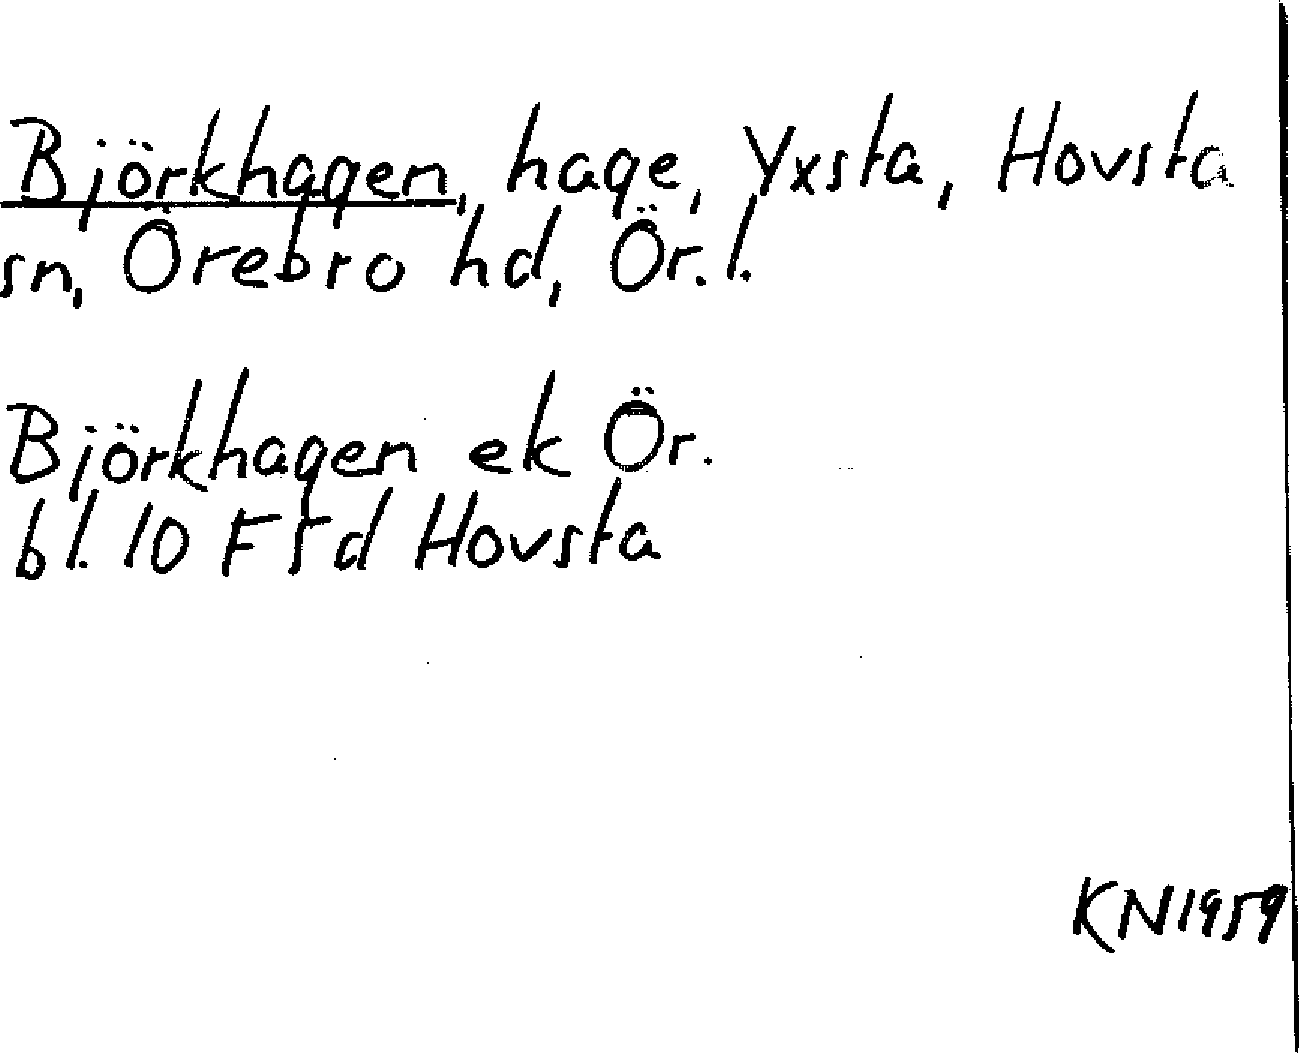 Björkhagen, hage, Yxsta, Hovsta
sn, Örebro hd, Ör. l.
Björkhagen ek Ör.
bl. 10 F5d Hovsta
KN1959